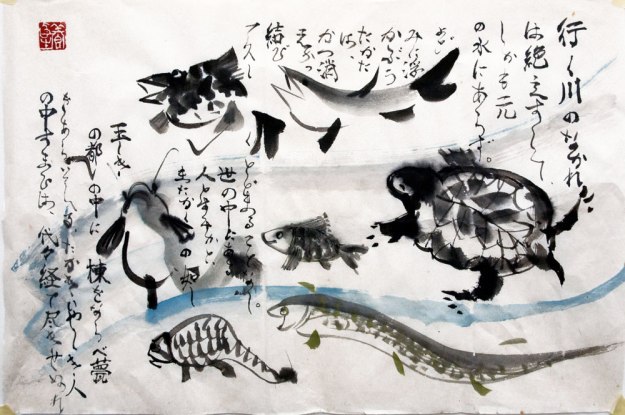 行く川のながれ
は絶えずして
しかも元
の水にあらず。
よど
みに浮
かぶう
たかたは、
かつ消
えかつ
結び
て久し
くとどまることなし。
世の中にある
人とすみかと
またかくの如し
玉しき
の都の中に 棟をならべ甍
をあらそへるたかきいやしき人
のすまひは、代々経て尽きせぬ